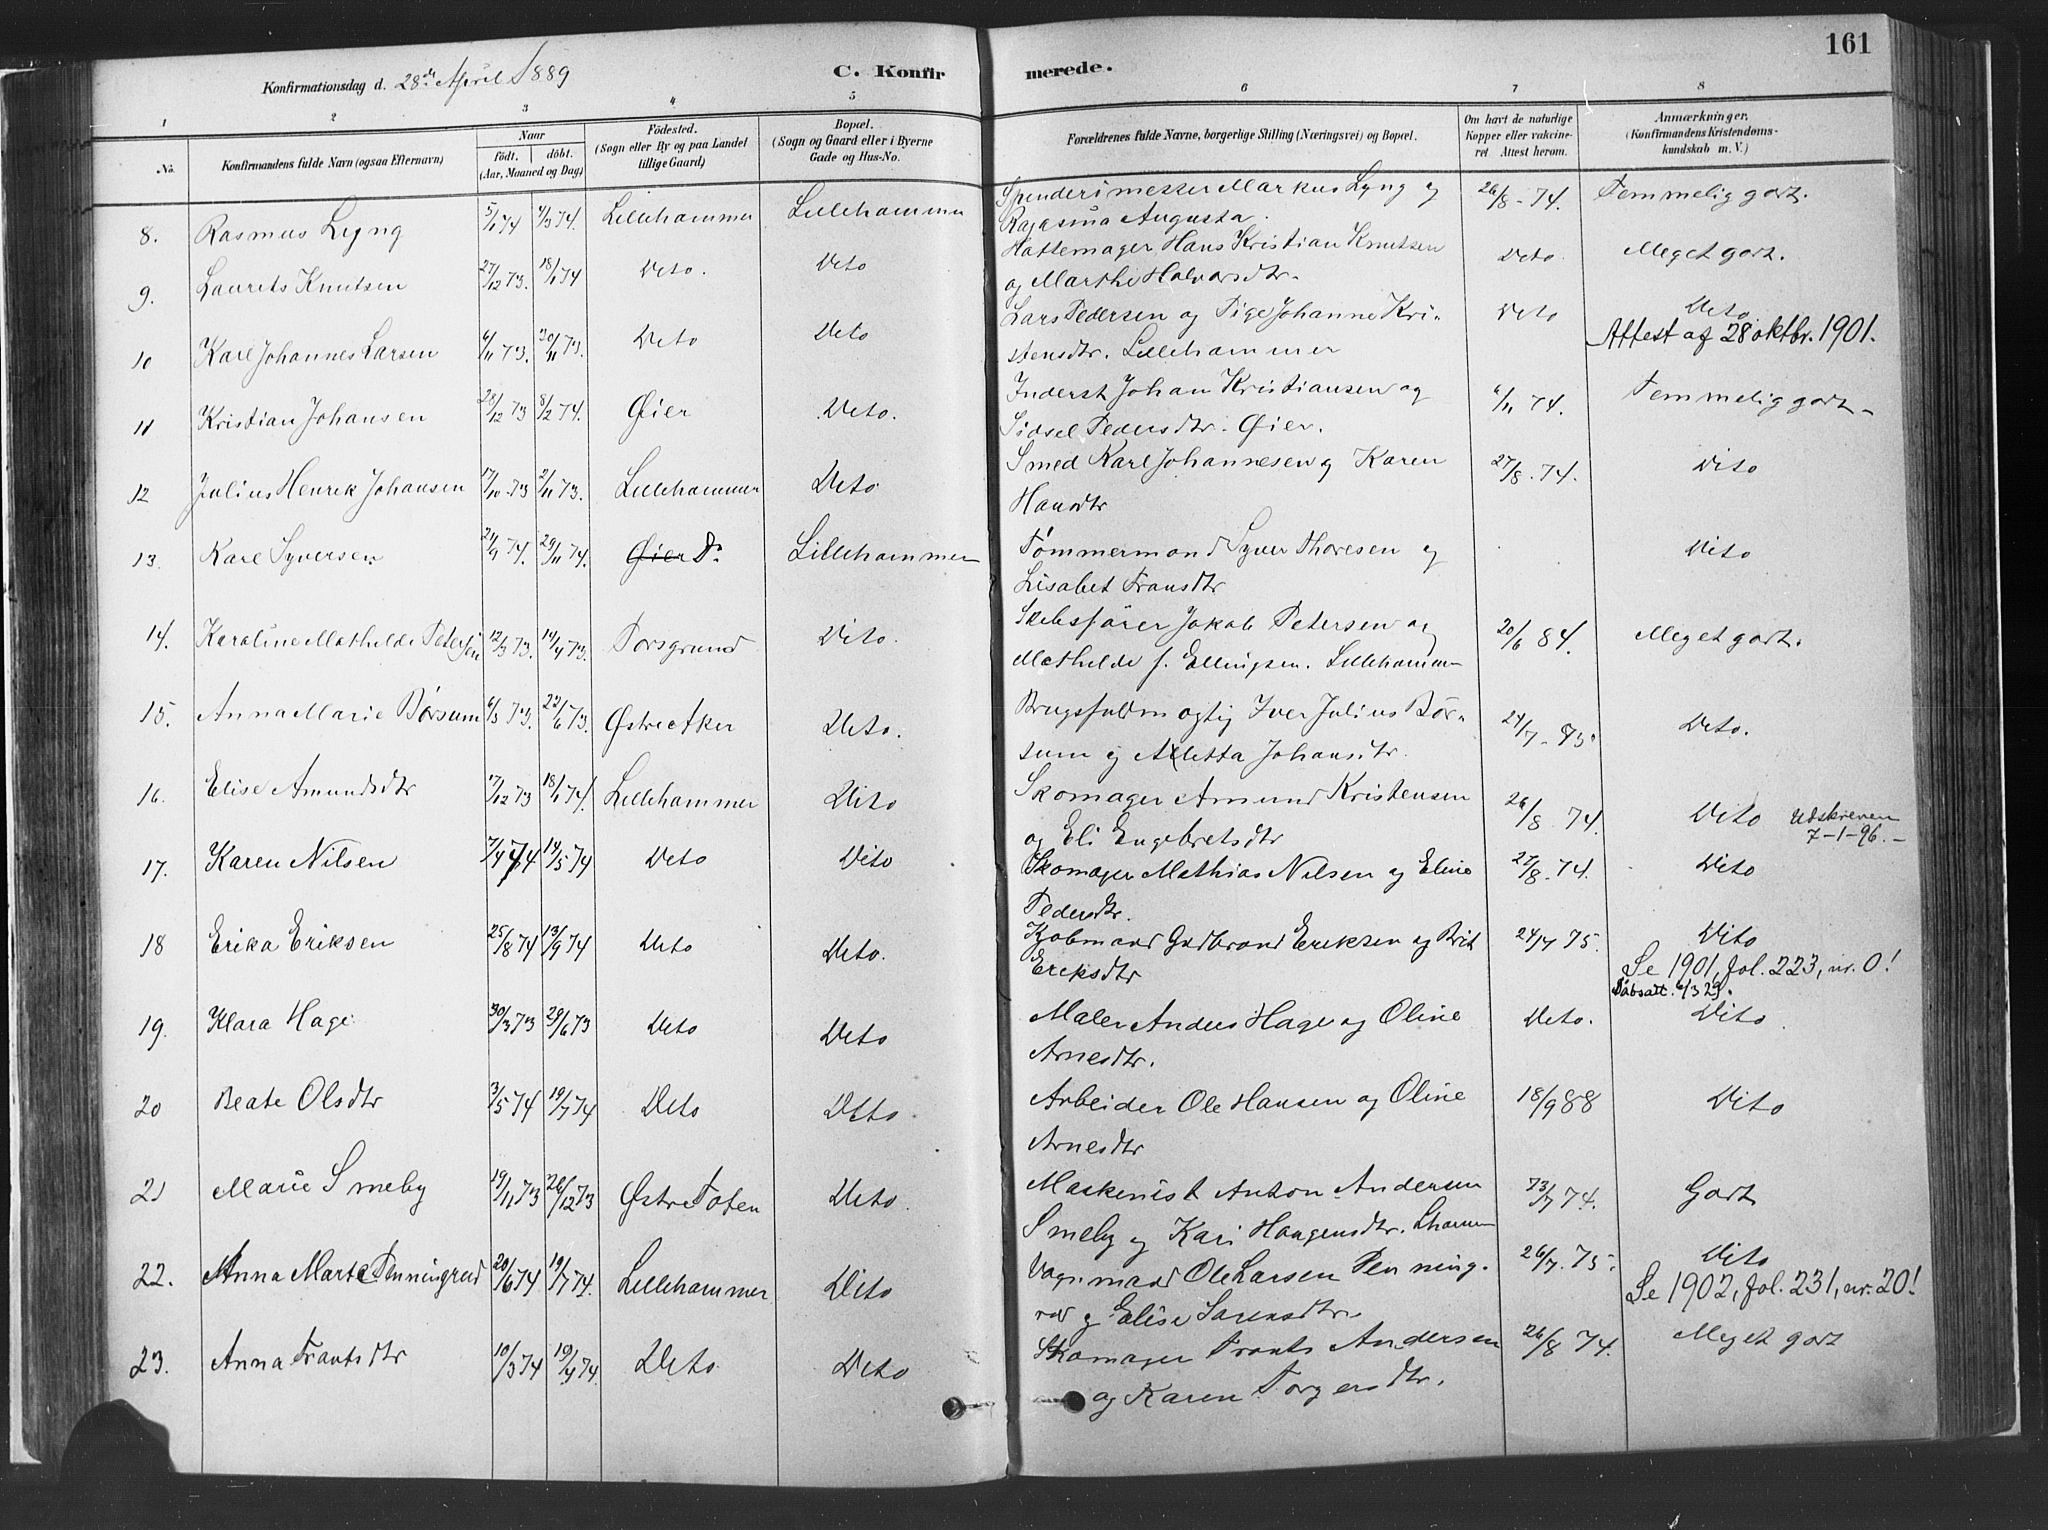 161
Konfirmationsdag d. 28de April 1889
C. Konfirmerede.
1 2 3 4 5 6 7 8
No. Konfirmandens fulde Navn (ogsaa Efternavn) Naar født. døbt. (Aar, Maaned og Dag) Fødested. (Sogn eller By og paa Landet tillige Gaard) Bopæl. (Sogn og Gaard eller i Byerne Gade og Hus-No. Forældrenes fulde Navne, borgerlige Stilling (Næringsvei) og Bopæl. Om havt de naturlige Kopper eller vakcineret Attest herom. Anmærkninger. (Konfirmandens Kristendomskundskab m. V.)
8. Rasmus Lyng 5/1 74 4/3 74. Lillehammer Lillehammer Markus Lyng og
Augusta. 26/8 - 74. Temmelig godt.
9. Laurits Knutsen 27/12 73. 18/1 74 Deto. Deto Hattemager Hans Kristian Knutsen
og Marthe Halvorsdtr. Deto. Meget godt.
10 Karl Johannes Larsen 6/11 73. 30/11 73. Deto Deto Lars Pedersen og Pige Johanne Kri-
stensdtr. Lillehammer Deto Deto
Attest af 28 oktbr. 1901.
11 Kristian Johansen 28/12 73 8/2 74. Øier Deto. Inderst Johan Kristiansen og
Sidsel Pedersdtr. Øier. 6/11 74. Temmelig godt
12 Julius Henrik Johansen 17/10 73 2/11 73. Lillehammer Deto Smed Karl Johannesen og Karen
Hansdtr 27/8. 74. Dito
13. Karl Syversen 29/11 74. Øier Do Lillehammer Tømmermand Syver Thoresen og
Lisabet Fransdtr Dito
14. Karoline Mathilde Petersen 12/3 73. 14/4 73. Porsgrund Dito. Skibsfører Jakob Petersen og
Mathilde f. Ellingsen. Lillehamm- 20/6 84. Meget godt.
15. Anna Marie Børsum 6/3 73. 22/6 73. Østre Aker Deto. Brugsfuldmægtig Iver Julius Bør-
sum og Alletta Johansdtr. 24/7 - 75 Deto.
16. Elise Amundsdtr 7/12 73 18/1 74. Lillehammer Dito Skomager Amund Kristensen
og Eli Engebretsdtr 26/8 74. Dito Udskreven
7-1-96.-
17. Karen Nilsen 7/4 74 14/5 74 Deto Dito Skomager Mathias Nilsen og Eline
Pedersdtr. 27/8. 74. Dito
18 Erika Eriksen 25/8 74 13/9 74 Deto Deto. Kjøbmand Gudbrand Eriksen og Brit
Eriksdtr 24/7 75. Dito
Se 1901, fol. 223, nr. 0!
Dåbsatt. 6/3 29.
19. Klara Hage 30/3 73 29/6 73 Deto Deto Maler Anders Hage og Oline
Arnesdtr. Deto. Dito
20 Beate Olsdtr 3/5 74 19/7 74 Deto Deto Arbeider Ole Hansen og Oline
Arnesdtr 18/9 88 Dito
21 Marie Smeby 19/11 73 26/12 73 Østre Toten Deto. Maskenist Anton Andersen
Smeby og Kari Haagensdtr. Lhamm- 23/7 74. Godt
22. Anna Marte Penningrud 20/6 74 19/7 74. Lillehammer Dito Vognmand Ole Larsen Penning-
rud og Elise Sørensdtr. 26/7. 75. Dito
Se 1902, fol. 231, nr. 20!
23. Anna Frantsdtr 10/3 74 19/4 74. Deto Deto Skomager Frants Andersen
og Karen Torgersdtr. 26/8 74. Meget godt